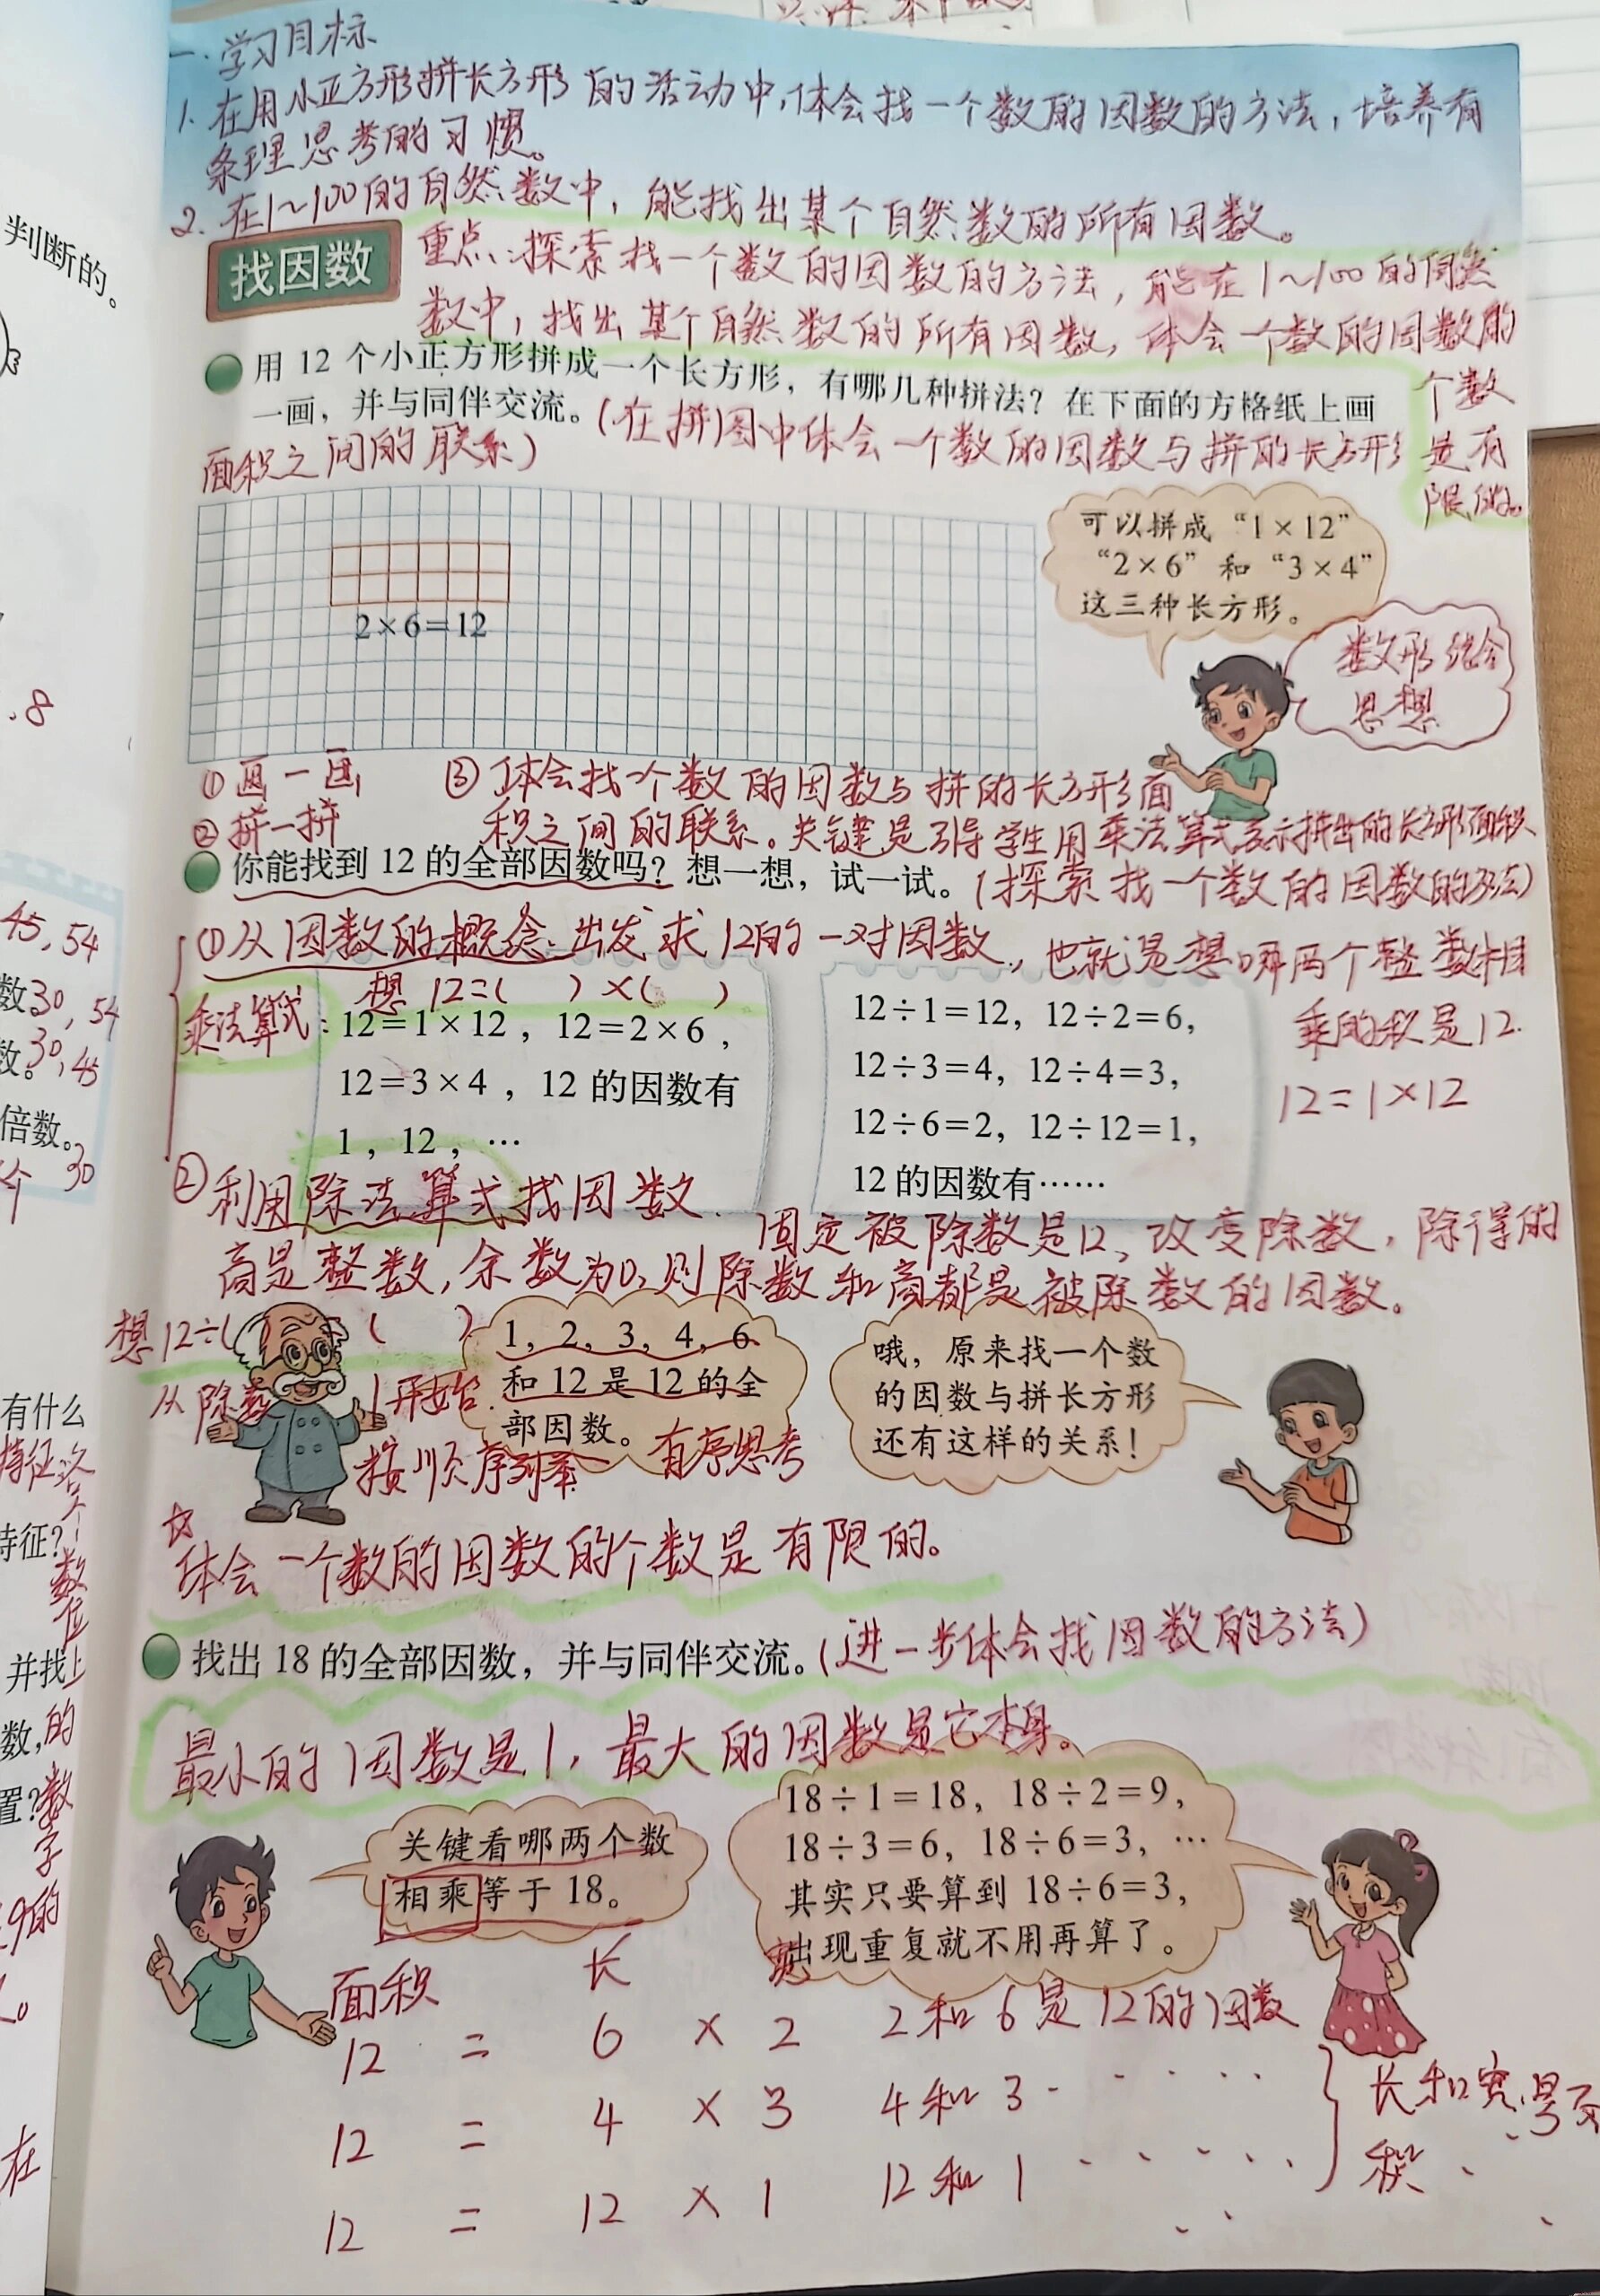 一.学习目标
1.在用小正方形拼长方形的活动中,体会找一个数的因数的方法,培养有
条理思考的习惯。
2.在1~100的自然数中,能找出某个自然数的所有因数。
找因数
重点:探索找一个数的因数的方法,能在1~100的自然
数中,找出某个自然数的所有因数,体会一个数的因数的
个数
是有
限的。
用 12 个小正方形拼成一个长方形，有哪几种拼法？在下面的方格纸上画
一画，并与同伴交流。(在拼图中体会一个数的因数与拼的长方形
面积之间的联系)
可以拼成“1×12”
“2×6”和“3×4”
这三种长方形。
2×6=12
数形结合
思想
①画一画
②拼一拼
③体会找一个数的因数与拼的长方形面
积之间的联系。关键是引导学生用乘法算式表示拼出的长方形面积
你能找到 12 的全部因数吗？想一想，试一试。(探索找一个数的因数的方法)
①从因数的概念出发求12的一对因数,也就是想哪两个整数相
乘的积是12.
12=1×12
想 12=( )×( )
乘法算式:
12=1×12，12=2×6，
12=3×4，12 的因数有
1，12，…
12÷1=12，12÷2=6，
12÷3=4，12÷4=3，
12÷6=2，12÷12=1，
12 的因数有……
②利用除法算式找因数.
固定被除数是12,改变除数,除得的
商是整数,余数为0,则除数和商都是被除数的因数。
想12÷( ) ( )
从除数 1开始
按顺序列举 有序思考
1，2，3，4，6
和 12 是 12 的全
部因数。
哦，原来找一个数
的因数与拼长方形
还有这样的关系！
☆
体会一个数的因数的个数是有限的。
找出 18 的全部因数，并与同伴交流。(进一步体会找因数的方法)
最小的因数是1,最大的因数是它本身。
关键看哪两个数
相乘等于 18。
18÷1=18，18÷2=9，
18÷3=6，18÷6=3，…
其实只要算到 18÷6=3，
出现重复就不用再算了。
面积 长 宽
12 = 6 × 2 2和6是12的因数
12 = 4 × 3 4和3 · · · · ·
12 = 12 × 1 12和1 · · · · ·
长和宽是
积
判断的。
.8
45,54
数 30,54
数。30,45
倍数。
个 30
有什么
特征
特征？
数
位
并找
数，的
置？数
字
9的
在